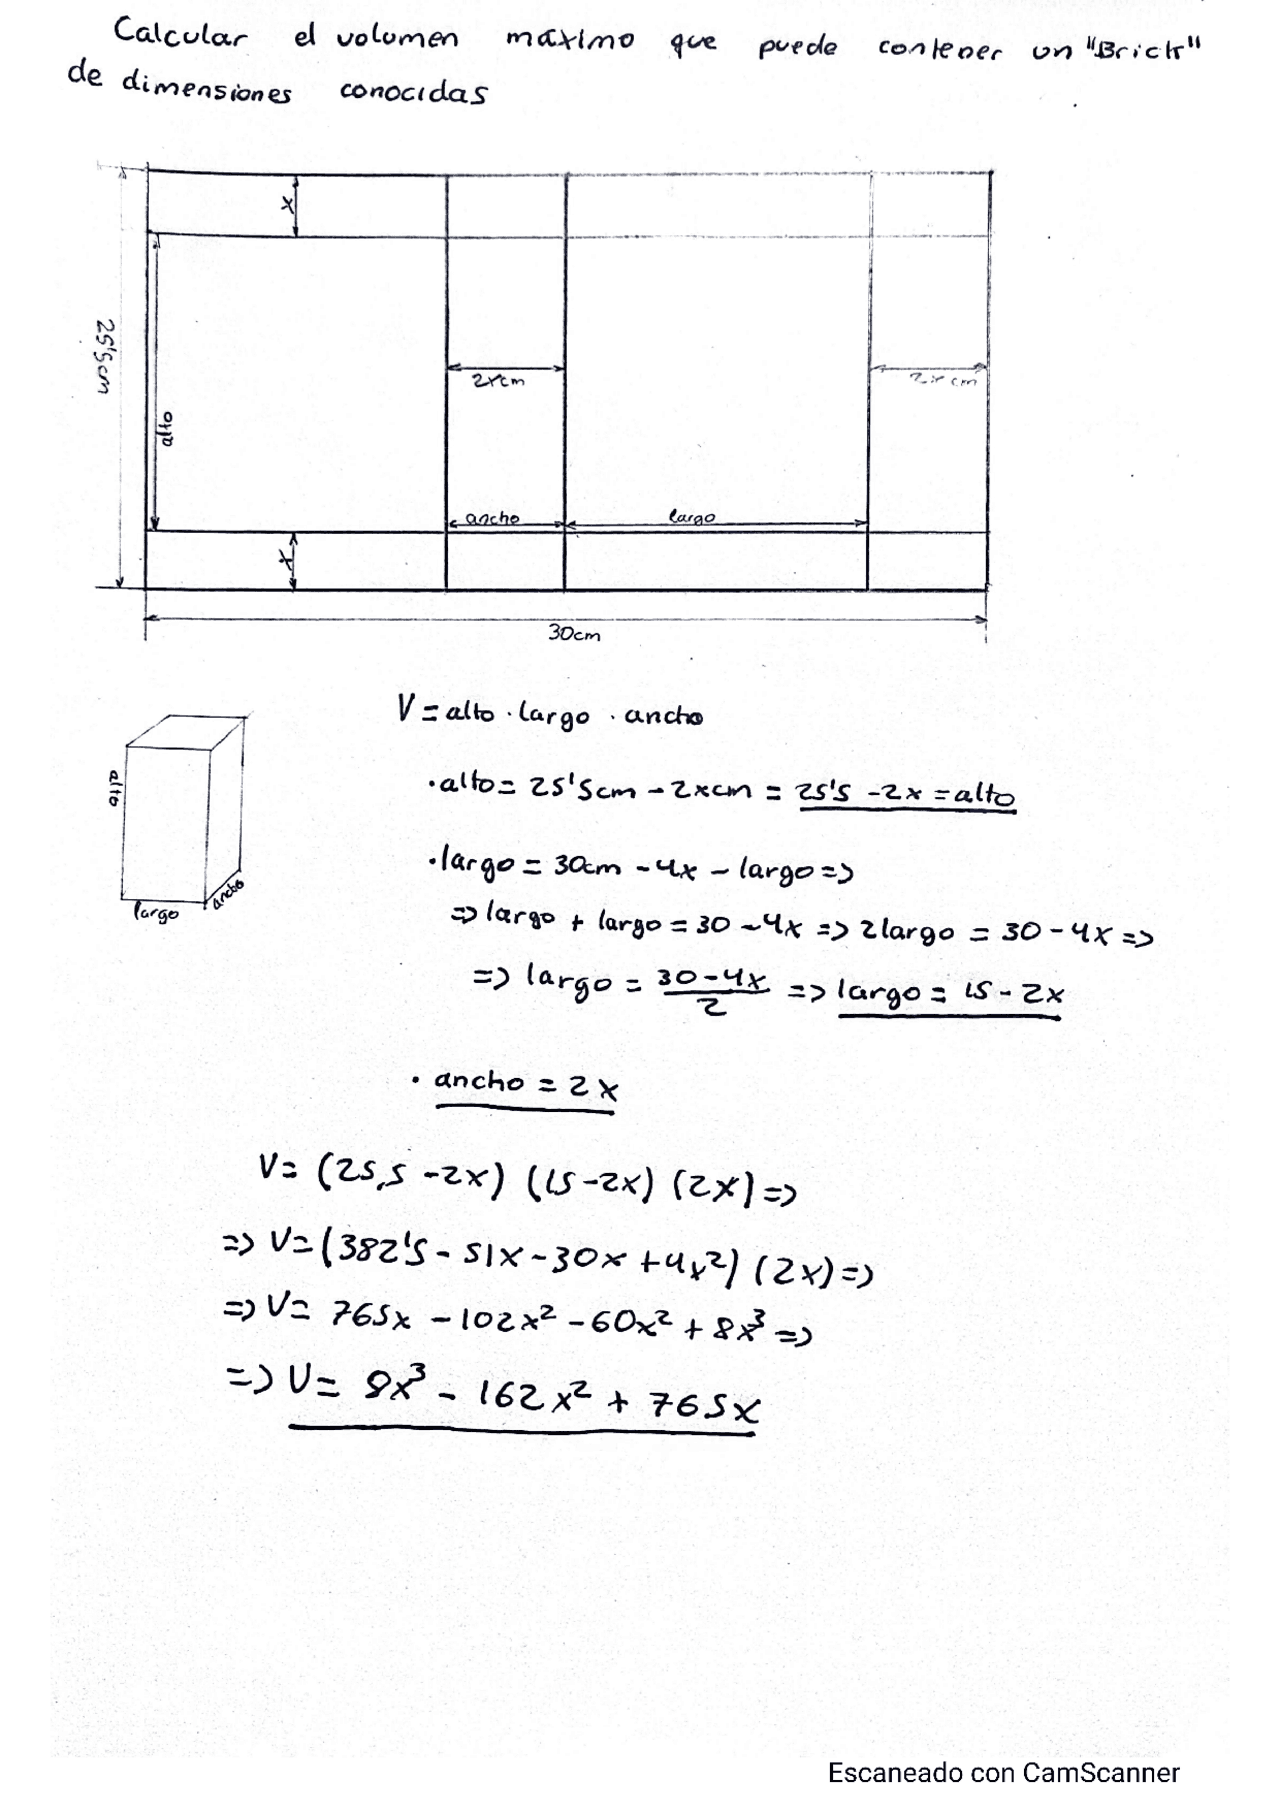 Calcular el volumen máximo que puede contener un "Brick"
de dimensiones conocidas
x
25'5cm
alto
2xcm
2x cm
ancho
largo
x
30cm
V = alto · largo · ancho
alto
largo
ancho
· alto = 25'5cm - 2xcm = 25'5 - 2x = alto
· largo = 30cm - 4x - largo =>
=> largo + largo = 30 - 4x => 2largo = 30 - 4x =>
=> largo = 30-4x/2 => largo = 15 - 2x
· ancho = 2x
V = (25,5 - 2x) (15 - 2x) (2x) =>
=> V = (382'5 - 51x - 30x + 4x²) (2x) =>
=> V = 765x - 102x² - 60x² + 8x³ =>
=> V = 8x³ - 162x² + 765x
Escaneado con CamScanner